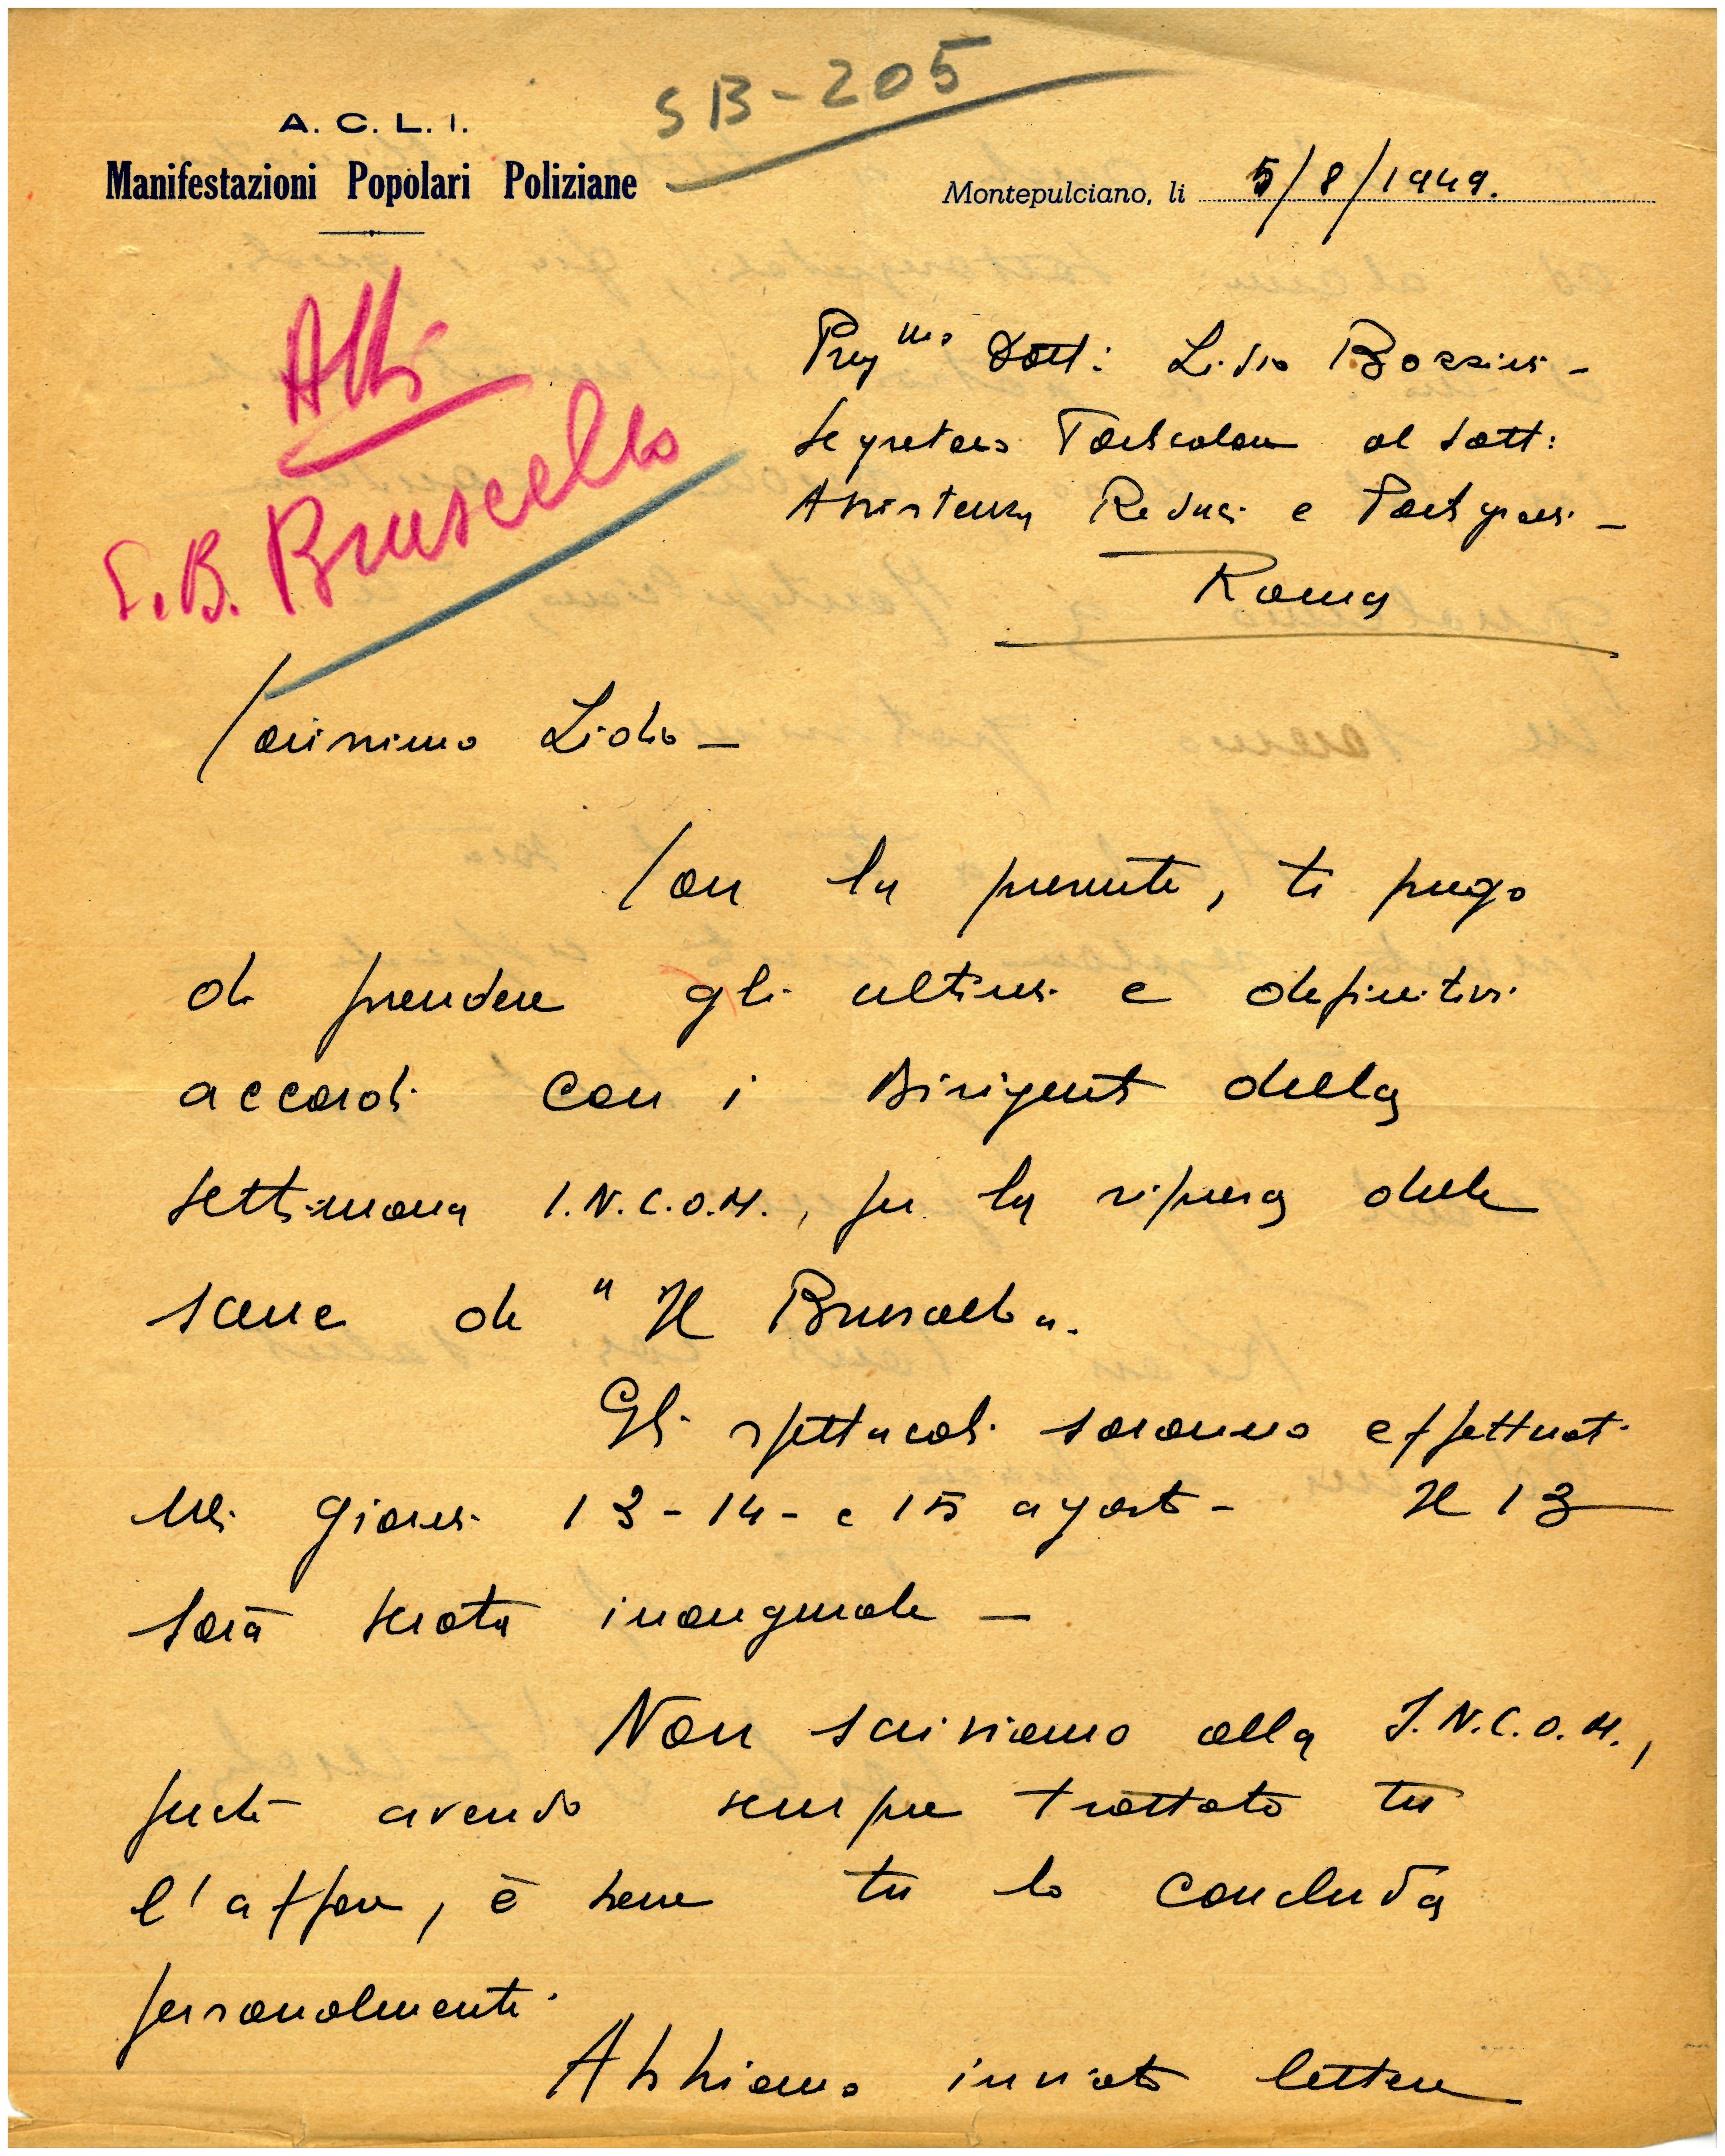 SB-205
A. C. L. I.
Manifestazioni Popolari Poliziane
Montepulciano, li 5/8/1949.
Atti
S.B. Bruscello
Preg.mo Dott: Lidio Bozzini -
Segretario Particolare al Sott:
Assistenza Reduci e Partigiani -
Roma
Carissimo Lidio -
Con la presente, ti prego
di prendere gli ultimi e definitivi
accordi con i Dirigenti della
settimana I.N.C.O.M., per la ripresa delle
scene di "Il Bruscello".
Gli spettacoli saranno effettuati
nei giorni 13-14- e 15 agosto - Il 13
sarà serata inaugurale -
Non scriviamo alla I.N.C.O.M.,
perché avendo sempre trattato tu
l'affare, è bene tu lo concluda
personalmente.
Abbiamo inviato lettere